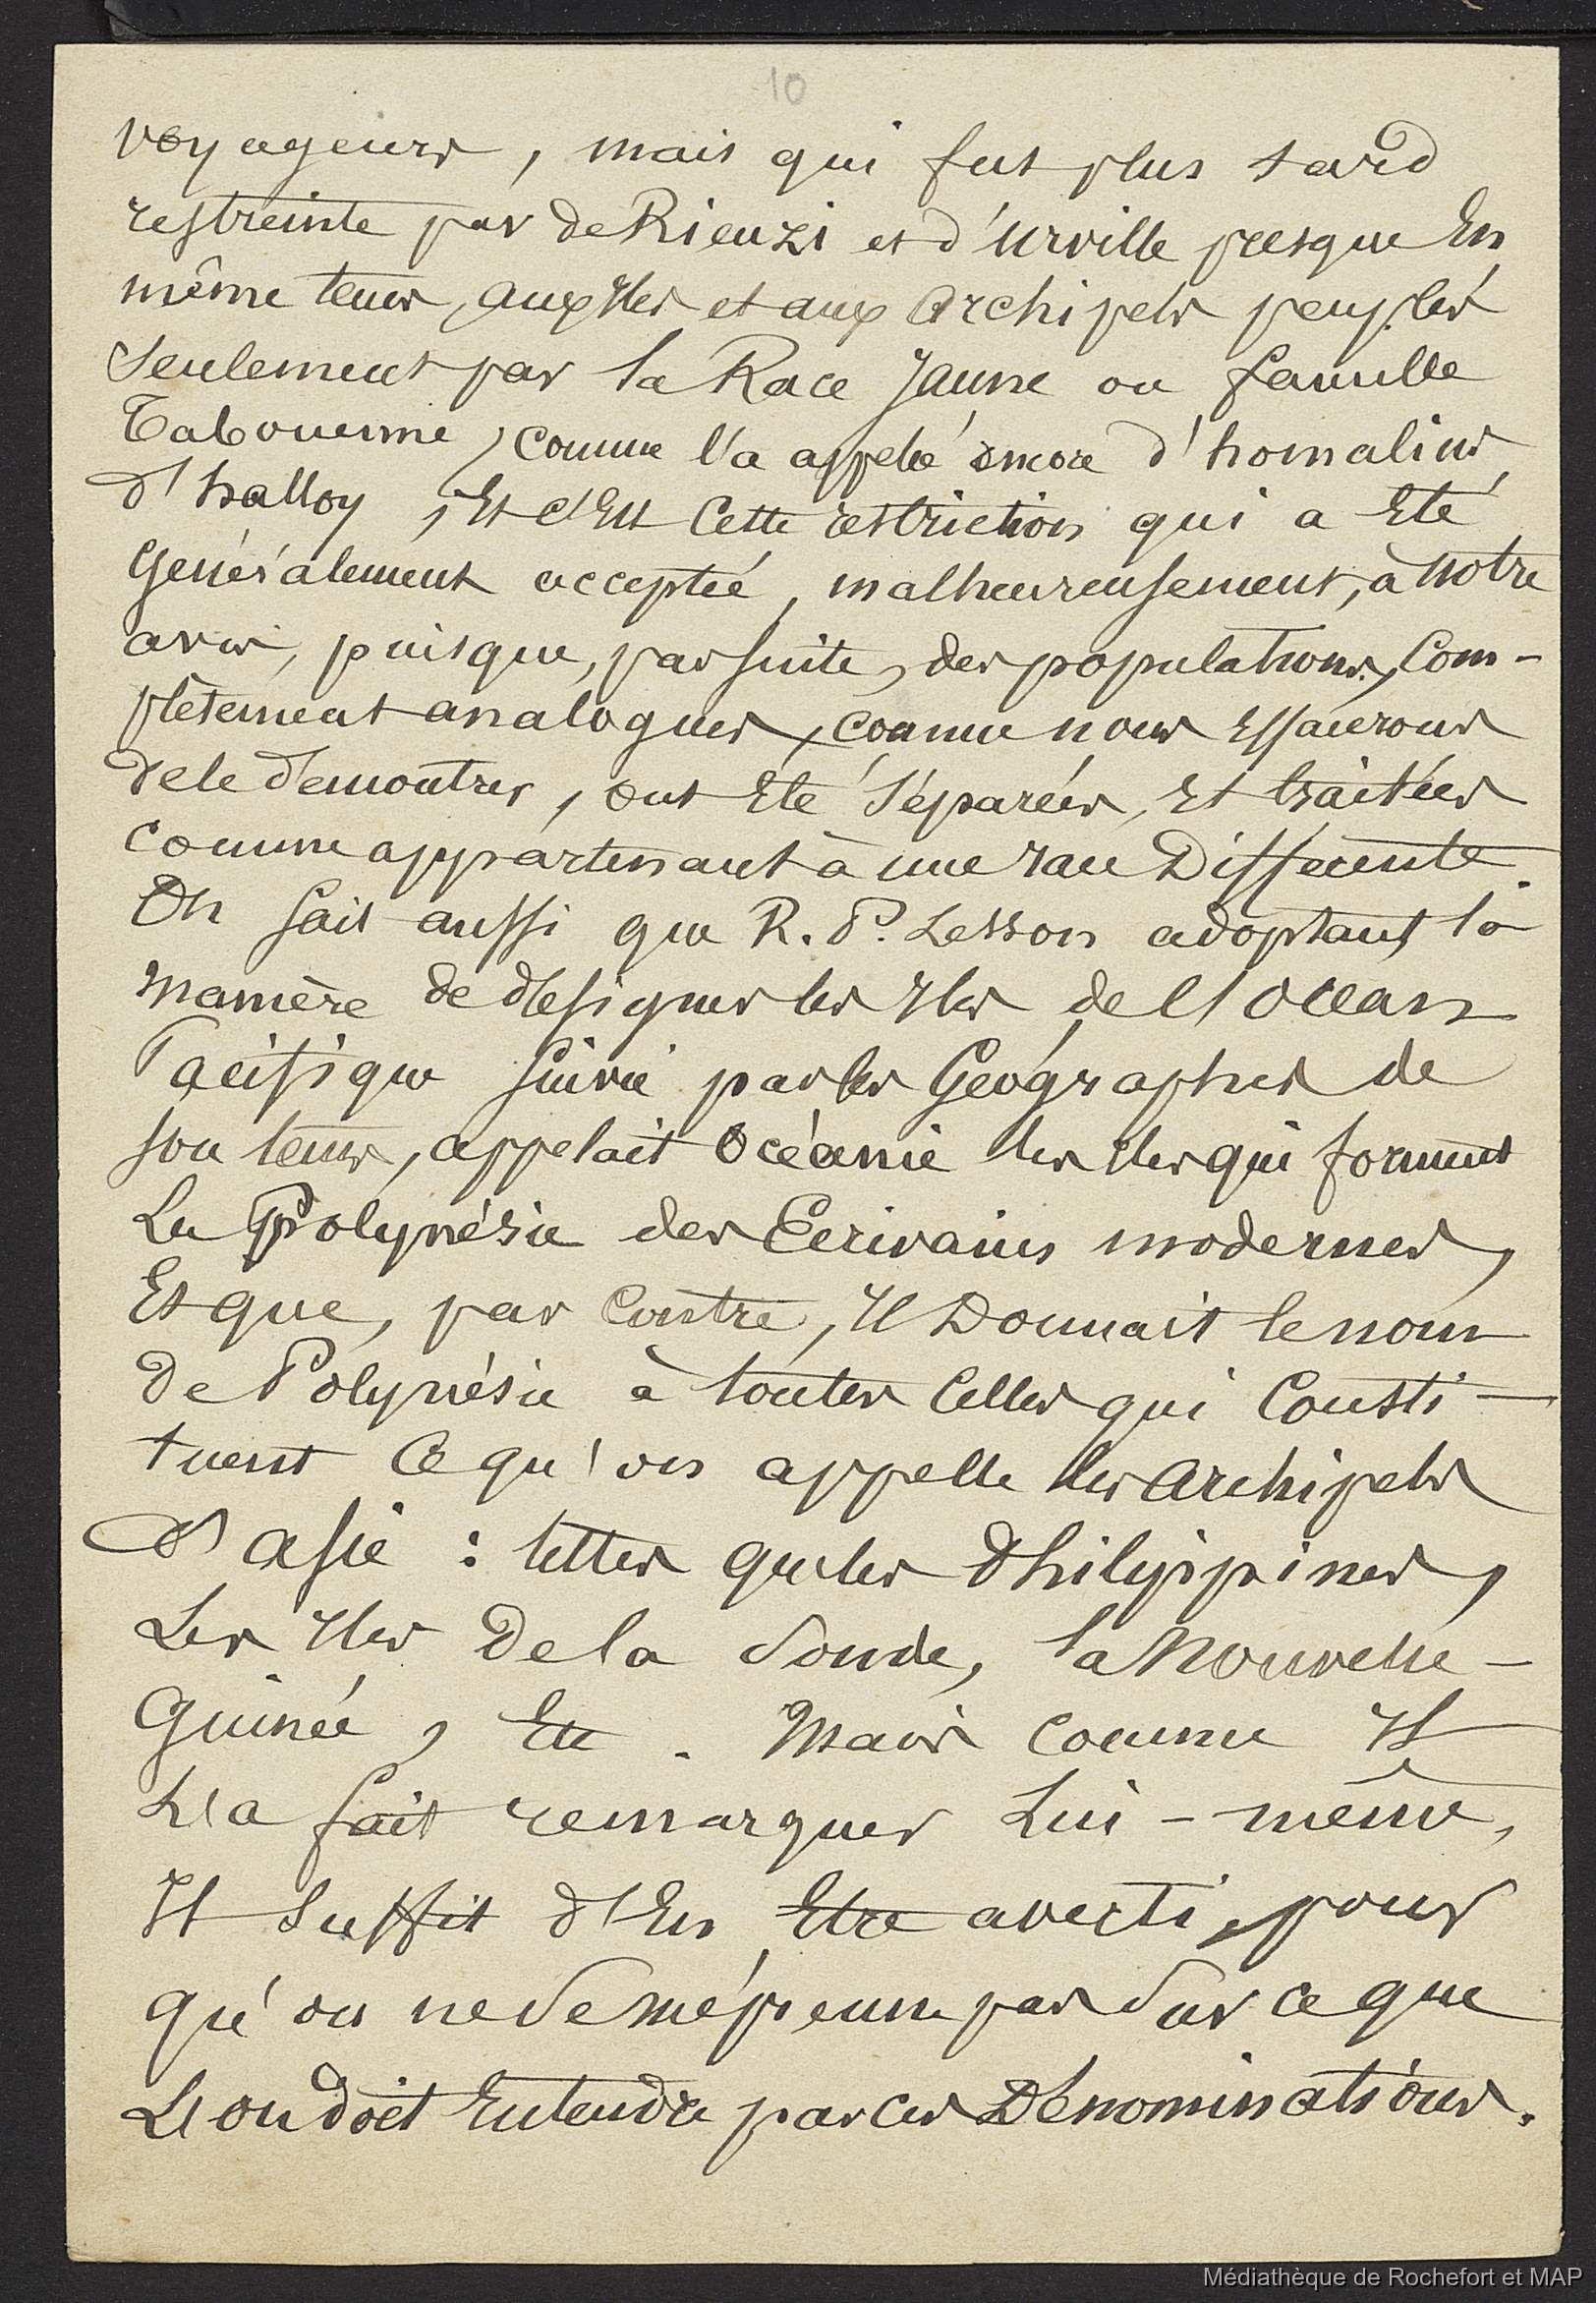 10
voyageurs, mais qui fut plus tard
restreinte par de Rienzi et d'Urville presque En
même tems, aux Iles et aux Archipels peuplés
Seulement par la Race Jaune ou famille
Tabouenne, comme l'a appelé encore d'homalius
d'halloy, Et c'Est Cette restriction qui a Eté
Généralement acceptée, malheureusement, à notre
avis, puisque, par suite, des populations, Com-
plètement analogues, comme nous Essaierons
de le démontrer, ont Eté Séparées, Et traitées
comme appartenant à une race Différente.
On sait aussi que R. P. Lesson adoptant la
manière de désigner les Iles de l'océan
Pacifique suivie par les Géographes de
son tems, appelait Océanie les Iles qui forment
La Polynésie des Ecrivains modernes,
Et que, par Contre, Il Donnait le nom
De Polynésie à toutes Celles qui Consti-
tuent Ce qu'on appelle les Archipels
d'asie : telles que les Philippines,
Les Iles De la Sonde, la Nouvelle-
Guinée, Etc. Mais Comme Il
L'a fait remarquer Lui-même,
Il Suffit d'En Etre averti, pour
qu'on ne Se méprenne pas Sur ce que
L'on doit Entendre par Ces Dénominations.
Médiathèque de Rochefort et MAP